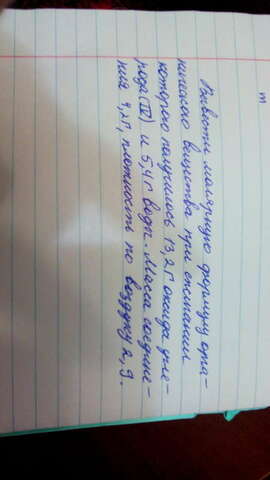 m
Вывести молярную формулу орга-
нического вещества при сжигании
которого получилось 13,2г оксида угле-
рода (IV) и 5,4г воды. Масса соедине-
ния 4,2г, плотность по воздуху 2,9.